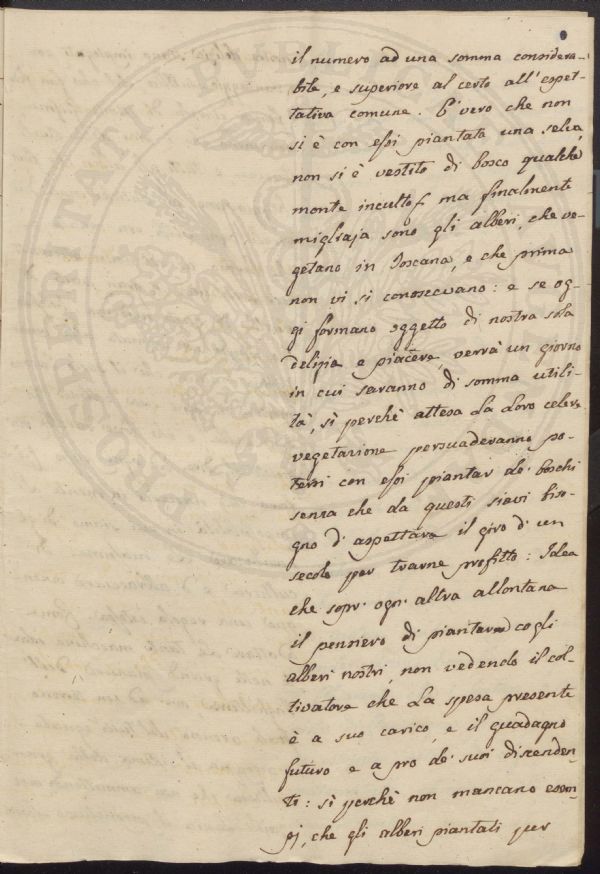 il numero ad una somma considera-
bile, e superiore al certo all'espet-
tativa comune. E' vero che non
si è con essi piantata una selva,
non si è vestito di bosco qualche
monte incolto, ma finalmente
migliaja sono gli alberi, che ve-
getano in Toscana, e che prima
non vi si conoscevano: e se og-
gi formano oggetto di nostra sola
delizia e piacere, verrà un giorno
in cui saranno di somma utili-
tà, sì perchè attesa la loro celere
vegetazione persuaderanno po-
tersi con essi piantar de' boschi
senza che da questi siavi biso-
gno d'aspettare il giro d'un
secolo per trarne profitto: Idea
che sopr' ogn' altra allontana
il pensiero di piantare cogli
alberi nostri, non vedendo il col-
tivatore che la spesa presente
è a suo carico, e il guadagno
futuro e a pro de' suoi discenden-
ti: sì perchè non mancano esem-
pj, che gli alberi piantati per
PROSPERITATI PUBLICAE